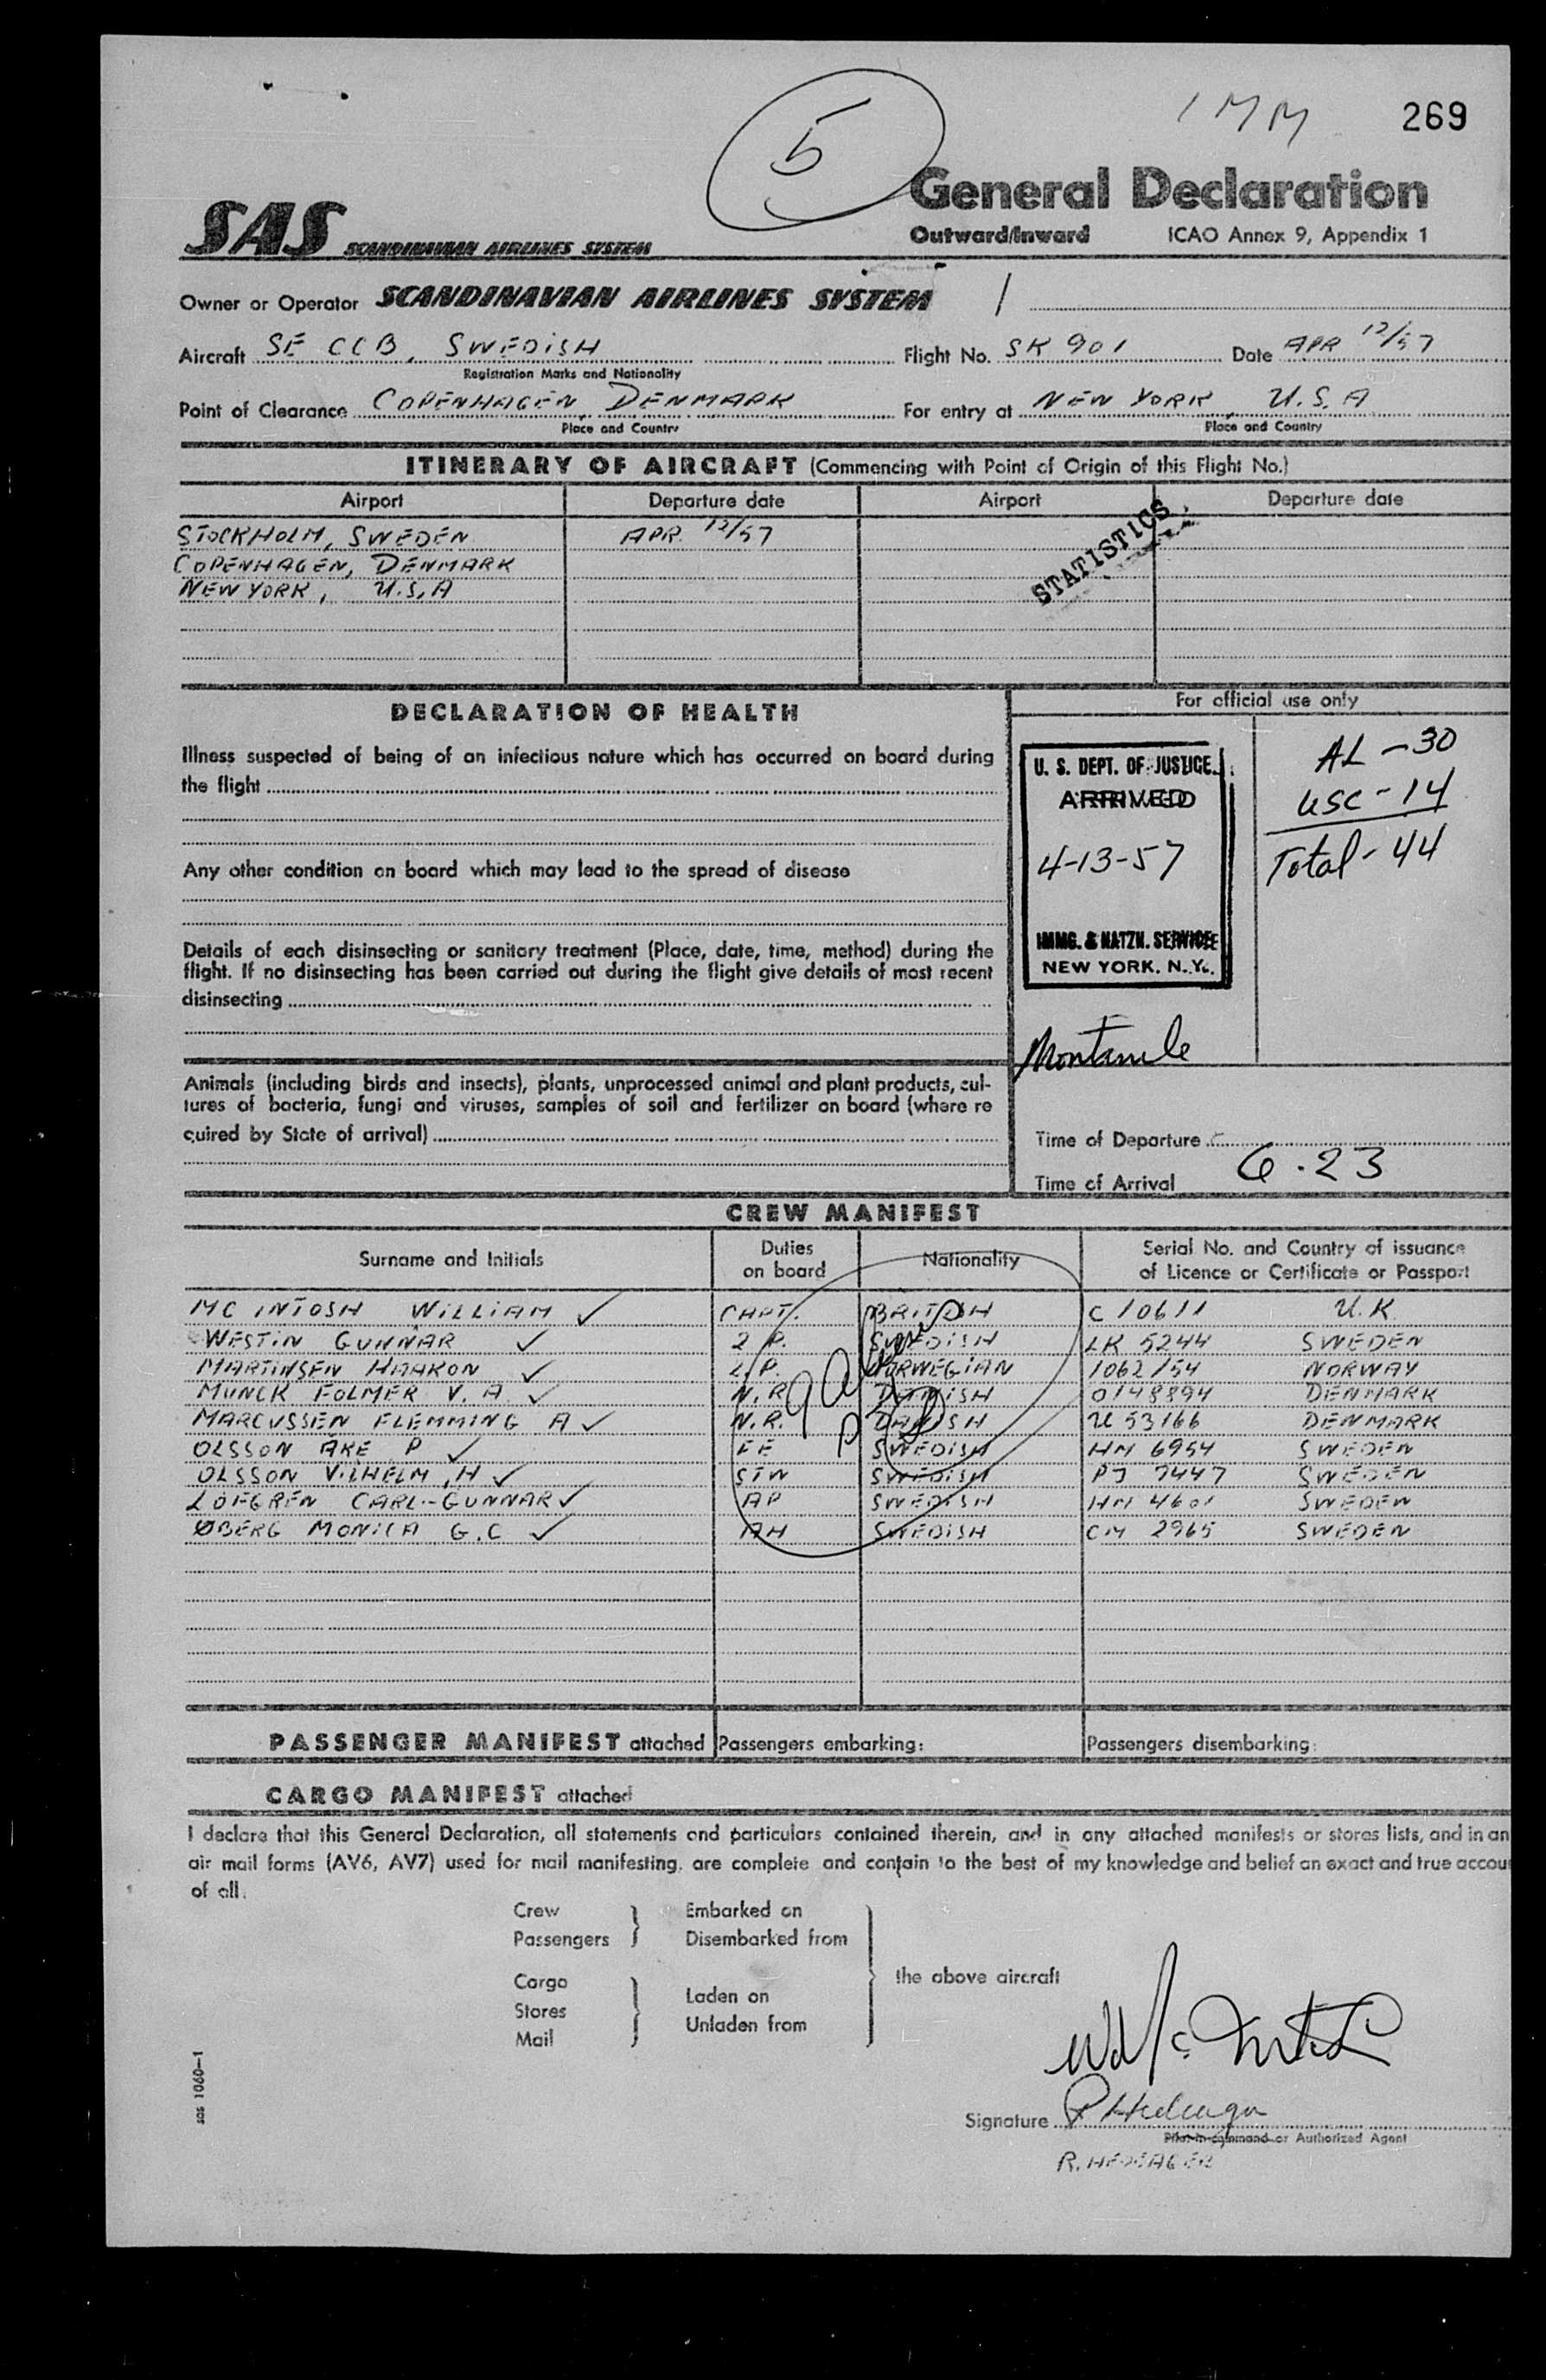 1 M M 269
5
General Declaration
SAS SCANDINAVIAN AIRLINES SYSTEM
Outward/Inward ICAO Annex 9, Appendix 1
Owner or Operator SCANDINAVIAN AIRLINES SYSTEM /
Aircraft SE CCB, SWEDISH Flight No. SK 901 Date APR 12/57
Registration Marks and Nationality
Point of Clearance COPENHAGEN, DENMARK For entry at NEW YORK, U.S.A
Place and Country Place and Country
ITINERARY OF AIRCRAFT (Commencing with Point of Origin of this Flight No.)
Airport Departure date Airport Departure date
STOCKHOLM, SWEDEN APR. 12/57
COPENHAGEN, DENMARK
NEW YORK, U.S.A
STATISTICS
DECLARATION OF HEALTH
Illness suspected of being of an infectious nature which has occurred on board during
the flight
Any other condition on board which may lead to the spread of disease
Details of each disinsecting or sanitary treatment (Place, date, time, method) during the
flight. If no disinsecting has been carried out during the flight give details of most recent
disinsecting
Animals (including birds and insects), plants, unprocessed animal and plant products, cul-
tures of bacteria, fungi and viruses, samples of soil and fertilizer on board (where re
quired by State of arrival)
For official use only
U. S. DEPT. OF JUSTICE
ARRIVED
4-13-57
IMMG. & NATZN. SERVICE
NEW YORK. N. Y.
AL - 30
USC - 14
Total - 44
Time of Departure
Time of Arrival 6.23
CREW MANIFEST
Surname and Initials Duties on board Nationality Serial No. and Country of issuance of Licence or Certificate or Passport
MC INTOSH WILLIAM ✓ CAPT. BRITISH C 10611 U.K.
WESTIN GUNNAR ✓ 2 P. SWEDISH LK 5244 SWEDEN
MARTINSEN HAAKON ✓ 2.P. NORWEGIAN 1062/54 NORWAY
MUNCK FOLMER V. A. ✓ N.R. DANISH 0148894 DENMARK
MARCUSSEN FLEMMING A ✓ N.R. DANISH U 53166 DENMARK
OLSSON ÅKE P ✓ FE SWEDISH HM 6954 SWEDEN
OLSSON VILHELM, H ✓ STW SWEDISH PJ 7447 SWEDEN
LÖFGREN CARL-GUNNAR ✓ AP SWEDISH HM 4601 SWEDEN
ØBERG MONICA G.C ✓ AH SWEDISH CM 2965 SWEDEN
PASSENGER MANIFEST attached Passengers embarking: Passengers disembarking:
CARGO MANIFEST attached
I declare that this General Declaration, all statements and particulars contained therein, and in any attached manifests or stores lists, and in an
air mail forms (AV6, AV7) used for mail manifesting, are complete and contain to the best of my knowledge and belief an exact and true accou
of all.
Crew Embarked on
Passengers Disembarked from
the above aircraft
Cargo
Stores Laden on
Mail Unladen from
Signature
Pilot-in-command or Authorized Agent
R. HEDEAGER
sas 1060-1